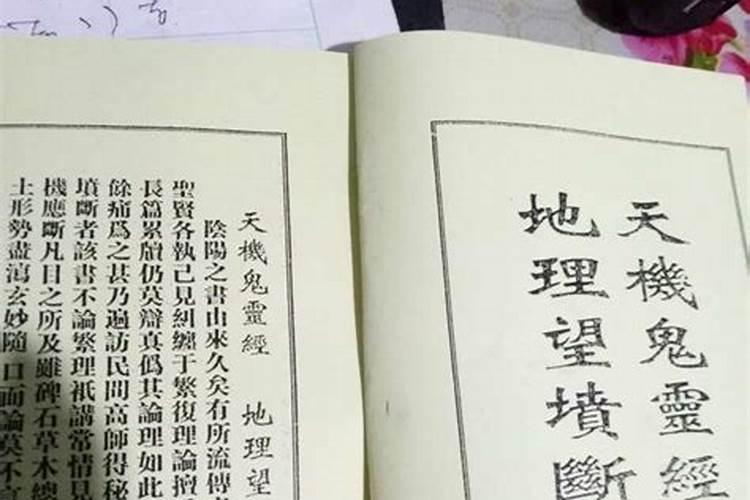 天機鬼靈經
地理望墳斷
天機鬼靈經 地理望
陰陽之書由來久矣有所流傳
聖賢各執己見糾纏于繁復理論擅
長篇累牘仍莫辯真僞其論理如此
餘痛爲之甚乃遍訪民間高師得秘
墳斷者該書不論繁理祇講常情見
機應斷凡目之所及雖碑石草木總
土形勢盡渲玄妙隨口而論莫不